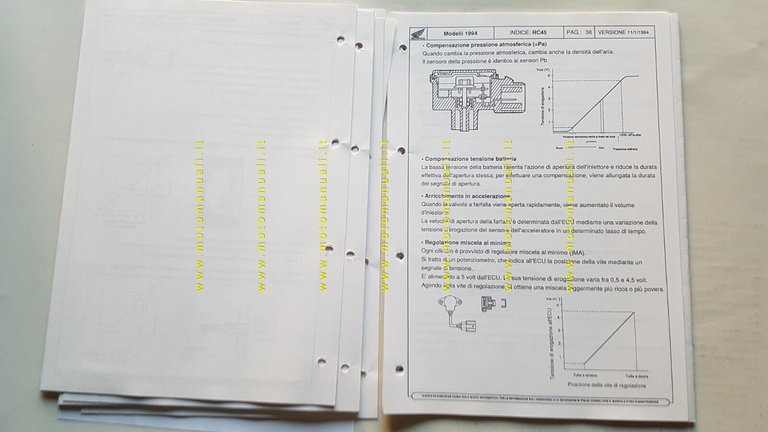 HONDA
Modelli 1994
INDICE: RC45
PAG.: 36
VERSIONE 11/1/1994
• Compensazione pressione atmosferica (=Pa)
Quando cambia la pressione atmosferica, cambia anche la densità dell'aria.
Il sensore della pressione è identico ai sensori Pb.
Volt (V)
5
4
3
2
1
Tensione di erogazione
Bassa
Alta
Pressione dell'aria
• Compensazione tensione batteria
La bassa tensione della batteria rallenta l'azione di apertura dell'iniettore e riduce la durata
effettiva dell'apertura stessa; per effettuare una compensazione, viene allungata la durata
del segnale di apertura.
• Arricchimento in accelerazione
Quando la valvola a farfalla viene aperta rapidamente, viene aumentato il volume
d'iniezione.
La velocità di apertura della farfalla è determinata dall'ECU mediante una variazione della
tensione di erogazione del sensore dell'acceleratore in un determinato lasso di tempo.
• Regolazione miscela al minimo
Ogni cilindro è provvisto di regolazione miscela al minimo (IMA).
Si tratta di un potenziometro, che indica all'ECU la posizione della vite mediante un
segnale di tensione.
E' alimentato a 5 volt dall'ECU. La sua tensione di erogazione varia fra 0,5 e 4,5 volt.
Agendo sulla vite di regolazione, si ottiene una miscela leggermente più ricca o più povera.
Volt (V)
5
4
3
2
1
Tensione di erogazione all'ECU
Tutta a sinistra
Tutta a destra
Posizione della vite di regolazione
www.motomanuali.it
www.motomanuali.it
www.motomanuali.it
www.motomanuali.it
www.motomanuali.it
www.motomanuali.it
www.motomanuali.it